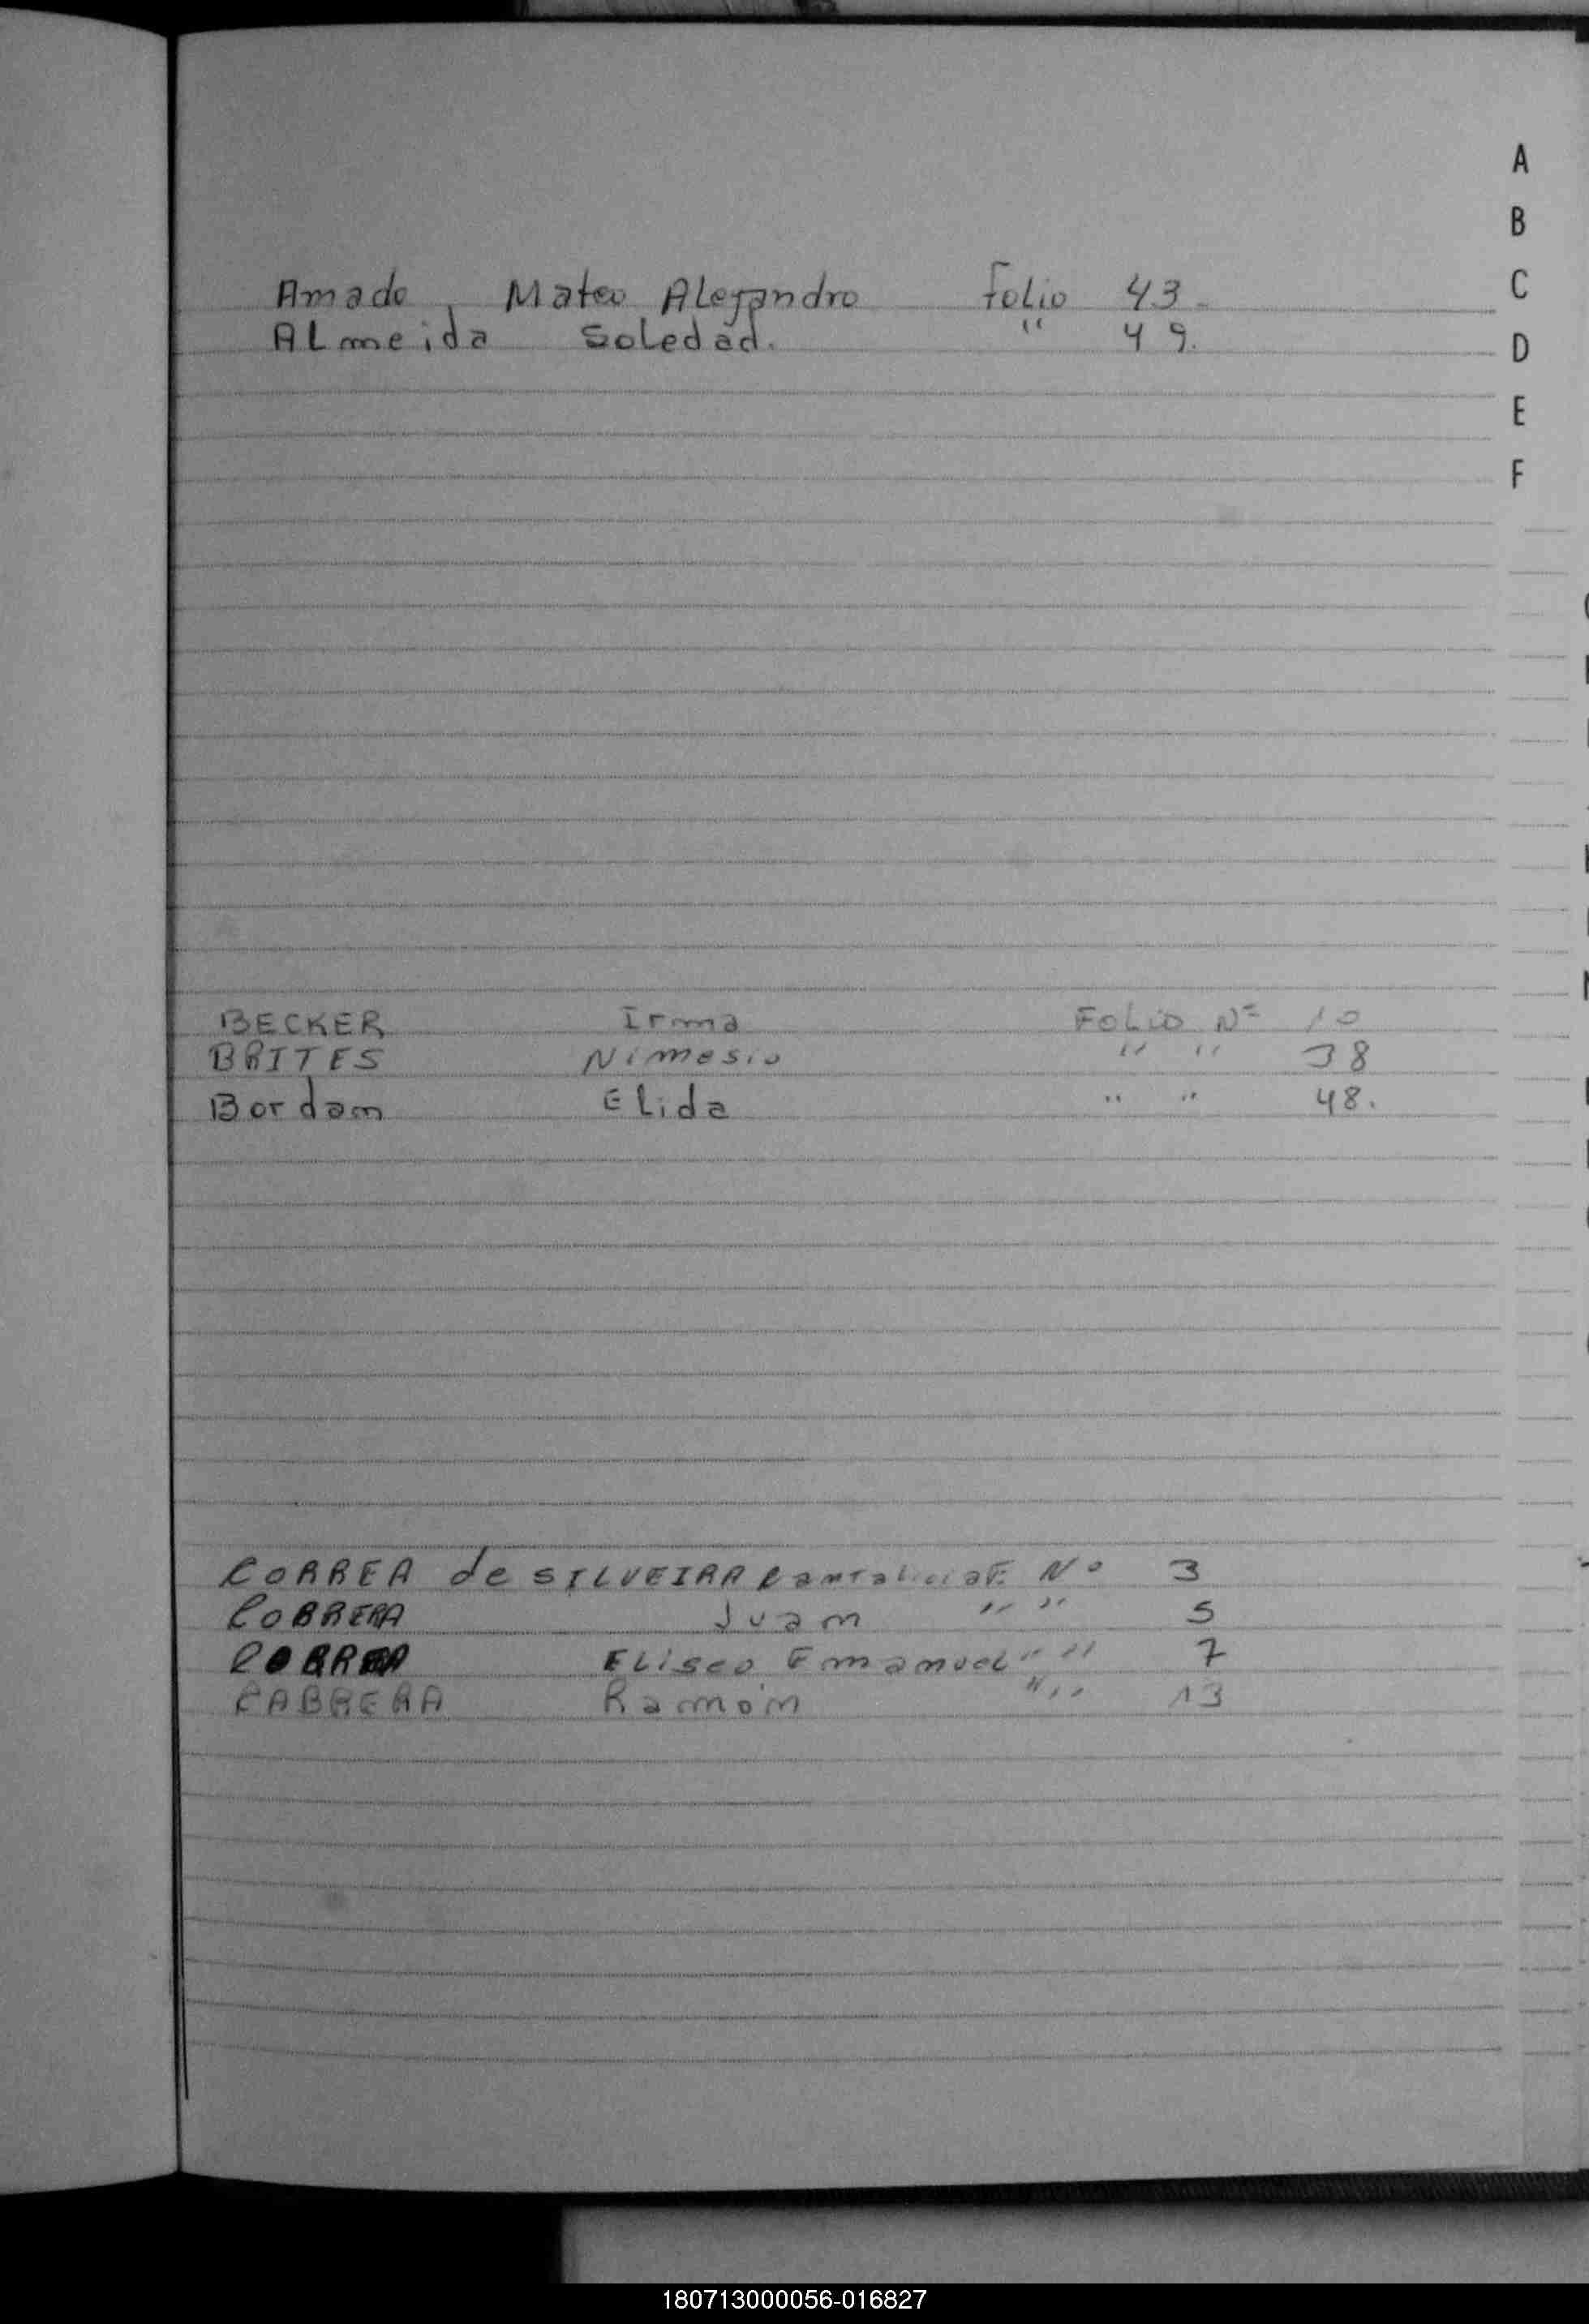 A
B
C
D
E
F
Amado, Mateo Alejandro Folio 43.
ALmeida Soledad. " 49.
BECKER Irma FOLIO Nº 10
BRITES Nimesio " " 38
Bordam Elida " " 48.
CORREA de SILVEIRA F. Nº 3
COBRERA Juam " " 5
Eliseo Emanuel " " 7
CABRERA Ramóm " " 13
180713000056-016827